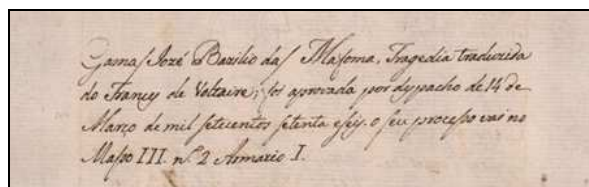 Gamaſ Jozé Bazilio daſ Mafoma, Tragedia traduzida
do Francez de Voltaire; foi aprovada por despacho de 14 de
Março de mil ſetecentos ſetenta e ſeis. o ſeu proceſſo vai no
Maſſo III. n.º 2 Armario I.